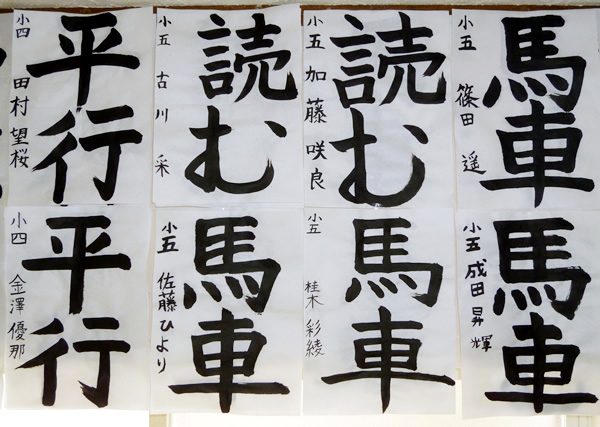 馬車
小五 篠田 遥
読む
小五 加藤 咲良
読む
小五 古川 采
平行
小四 田村 望桜
馬車
小五 成田 昇輝
馬車
小五 桂木 彩綾
馬車
小五 佐藤ひより
平行
小四 金澤優那